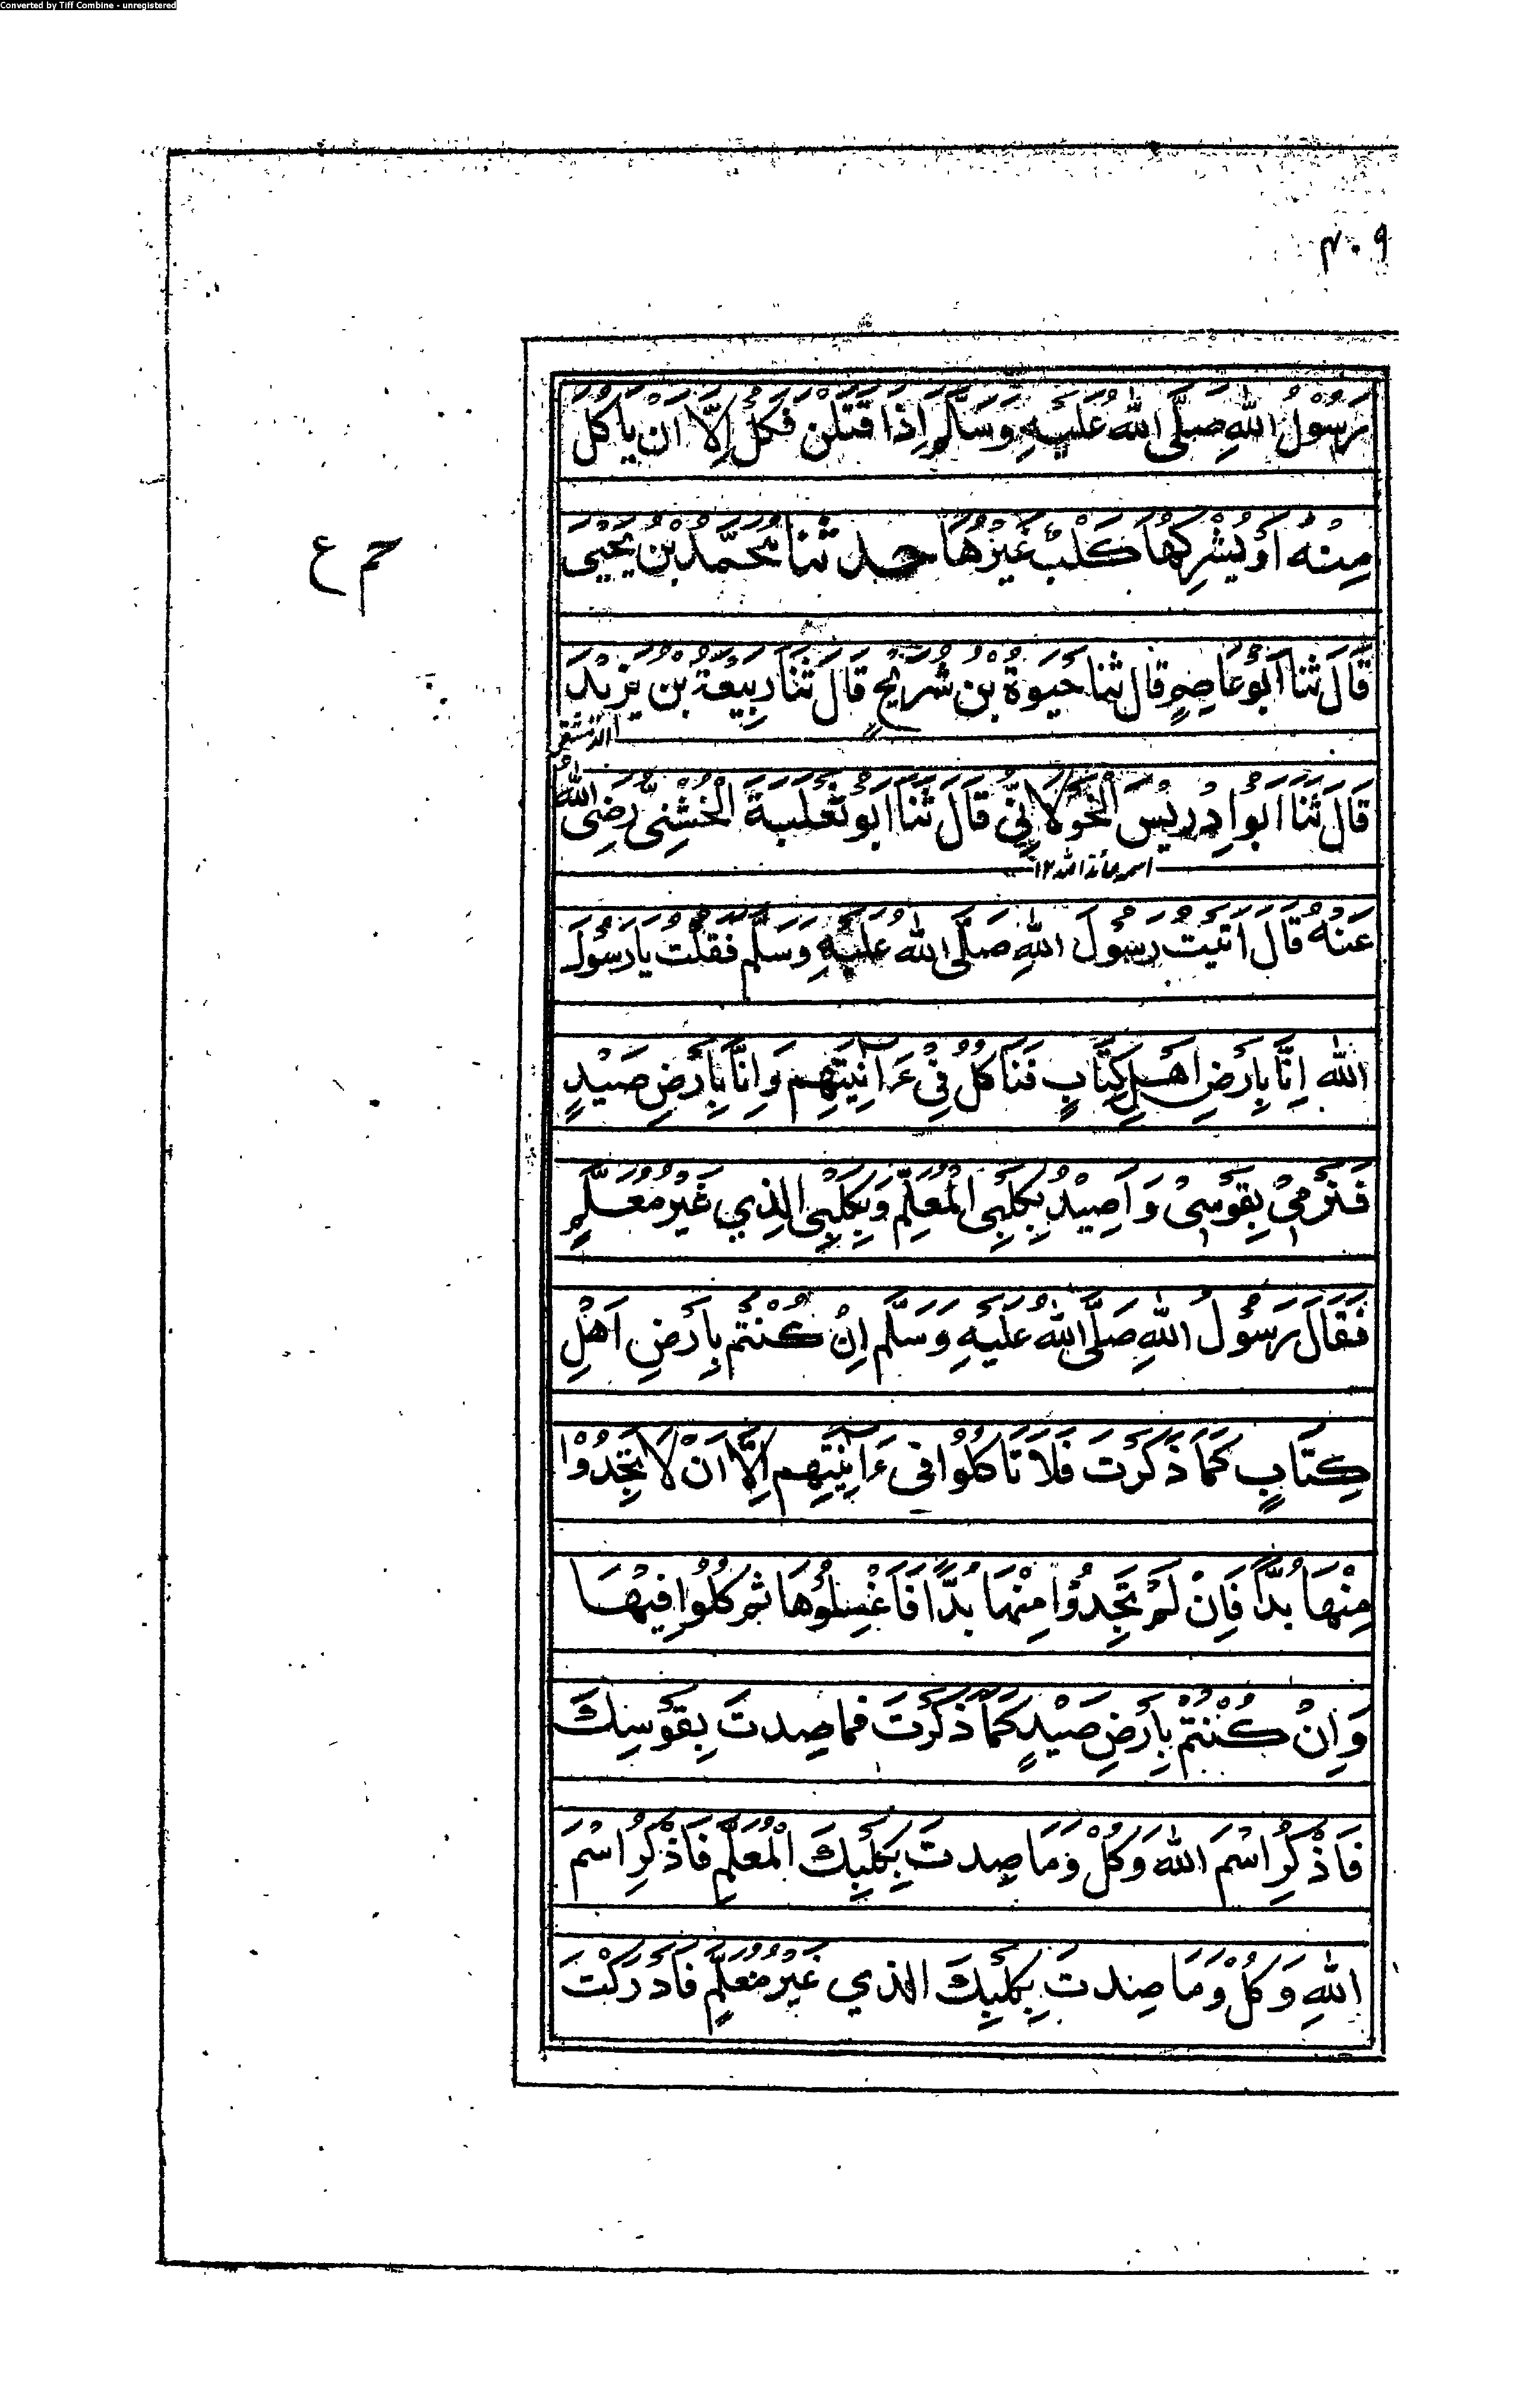 Converted by Tiff Combine - unregistered
٤٠٩
رَسُوْلُ اللّٰهِ صَلَّى اللّٰهُ عَلَيْهِ وَسَلَّمَ اِذَا قَتَلْنَ فَكُلْ اِلَّا اَنْ يَّاكُلَ
مِنْهُ اَوْ يُشْرِكَهَا كَلْبٌ غَيْرُهَا حد ثنا مُحَمَّدُ بْنُ يَحْيٰى
حم ع
قَالَ ثَنَا اَبُوْ عَاصِمٍ قَالَ ثَنَا حَيْوَةُ بْنُ شُرَيْحٍ قَالَ ثَنَا رَبِيْعَةُ بْنُ يَزِيْدَ
الدِّمَشْقِيُّ
قَالَ ثَنَا اَبُوْ اِدْرِيْسَ الْخَوْلَانِيُّ قَالَ ثَنَا اَبُوْ ثَعْلَبَةَ الْخُشَنِيُّ رَضِيَ اللّٰهُ
اسمه عائذ الله ١٢
عَنْهُ قَالَ اَتَيْتُ رَسُوْلَ اللّٰهِ صَلَّى اللّٰهُ عَلَيْهِ وَسَلَّمَ فَقُلْتُ يَا رَسُوْلَ
اللّٰهِ اِنَّا بِاَرْضِ اَهْلِ كِتَابٍ فَنَاكُلُ فِيْ ءَانِيَتِهِمْ وَاِنَّا بِاَرْضِ صَيْدٍ
فَنَرْمِيْ بِقَوْسِيْ وَاَصِيْدُ بِكَلْبِيَ الْمُعَلَّمِ وَبِكَلْبِيَ الَّذِي غَيْرُ مُعَلَّمٍ
فَقَالَ رَسُوْلُ اللّٰهِ صَلَّى اللّٰهُ عَلَيْهِ وَسَلَّمَ اِنْ كُنْتُمْ بِاَرْضِ اَهْلِ
كِتَابٍ كَمَا ذَكَرْتَ فَلَا تَاكُلُوْا فِي ءَانِيَتِهِمْ اِلَّا اَنْ لَا تَجِدُوْا
مِنْهَا بُدًّا فَاِنْ لَمْ تَجِدُوْا مِنْهَا بُدًّا فَاغْسِلُوْهَا ثم كُلُوْا فِيْهَا
وَاِنْ كُنْتُمْ بِاَرْضِ صَيْدٍ كَمَا ذَكَرْتَ فما صِدتَ بِقَوْسِكَ
فَاذْكُرِ اسْمَ اللّٰهِ وَكُلْ وَمَا صِدتَ بِكَلْبِكَ الْمُعَلَّمِ فَاذْكُرِ اسْمَ
اللّٰهِ وَكُلْ وَمَا صِدتَ بِكَلْبِكَ الذي غَيْرُ مُعَلَّمٍ فَاَدْرَكْتَ